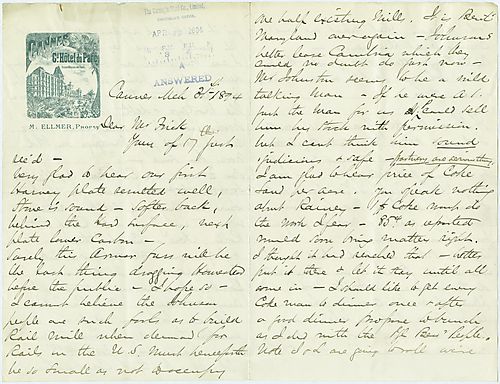 CANNES
Gd Hôtel du Parc
M. ELLMER, Propr
The Carnegie Steel Co., Limited
AP 1894
ANSWERED
Cannes Mch 31st 1894
Dear Mr Frick
Yours of 17 just
rec'd —
Very glad to hear our first
Harvey plate acquitted well,
Stone is sound — softer back,
behind the hard surface, next
plate lower Carbon —
Surely this Armor fuss will be
the last thing dragging ourselves
before the public — I hope so —
I cannot believe the Johnson
people are such fools as to build
Rail mill when demand for
Rails in the U S must henceforth
be so small as not to occupy
one half existing Mills. It is
Maryland over again — Johnsons
better lease Cambria which they
could no doubt do just now —
Mr Johnston seems to be a wild
talking man — If he were A 1
just the man for us & could sell
him my stock with permission.
but I can't think him sound
judicious & safe —
I am glad to hear price of Coke
has been. You speak nothing
about Rainey — 1$ Coke must do
the work I fear — 85¢ as reported
would soon bring matters right.
I thought it had reached that — better
put it there & let it stay until all
come in — I should like to get every
Coke man to dinner once & after
a good dinner propose
as I did with the
Note I &amp; L are going to roll wire